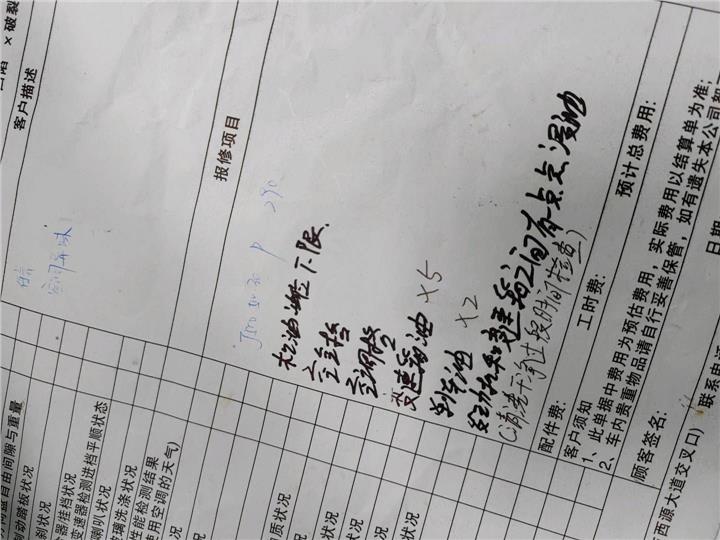 客户描述
× 破裂
报修项目
290
机油尺下限.
空气格
空调格
变速箱油 ×5
刹车油 ×2
发动机和变速箱之间有一点点渗油
(清洗干净过段时间检查)
配件费:
工时费:
预计总费用:
客户须知
1、此单据中费用为预估费用，实际费用以结算单为准；
2、车内贵重物品请自行妥善保管，如有遗失本公司
顾客签名:
日期
西源大道交叉口)
联系电话
自由间隙与重量
制动踏板状况
刹状况
器挂档状况
变速器检测进档平顺状态
喇叭状况
璃洗涤状况
性能检测结果
使用空调的天气)
况
质状况
状况
况
况
状况